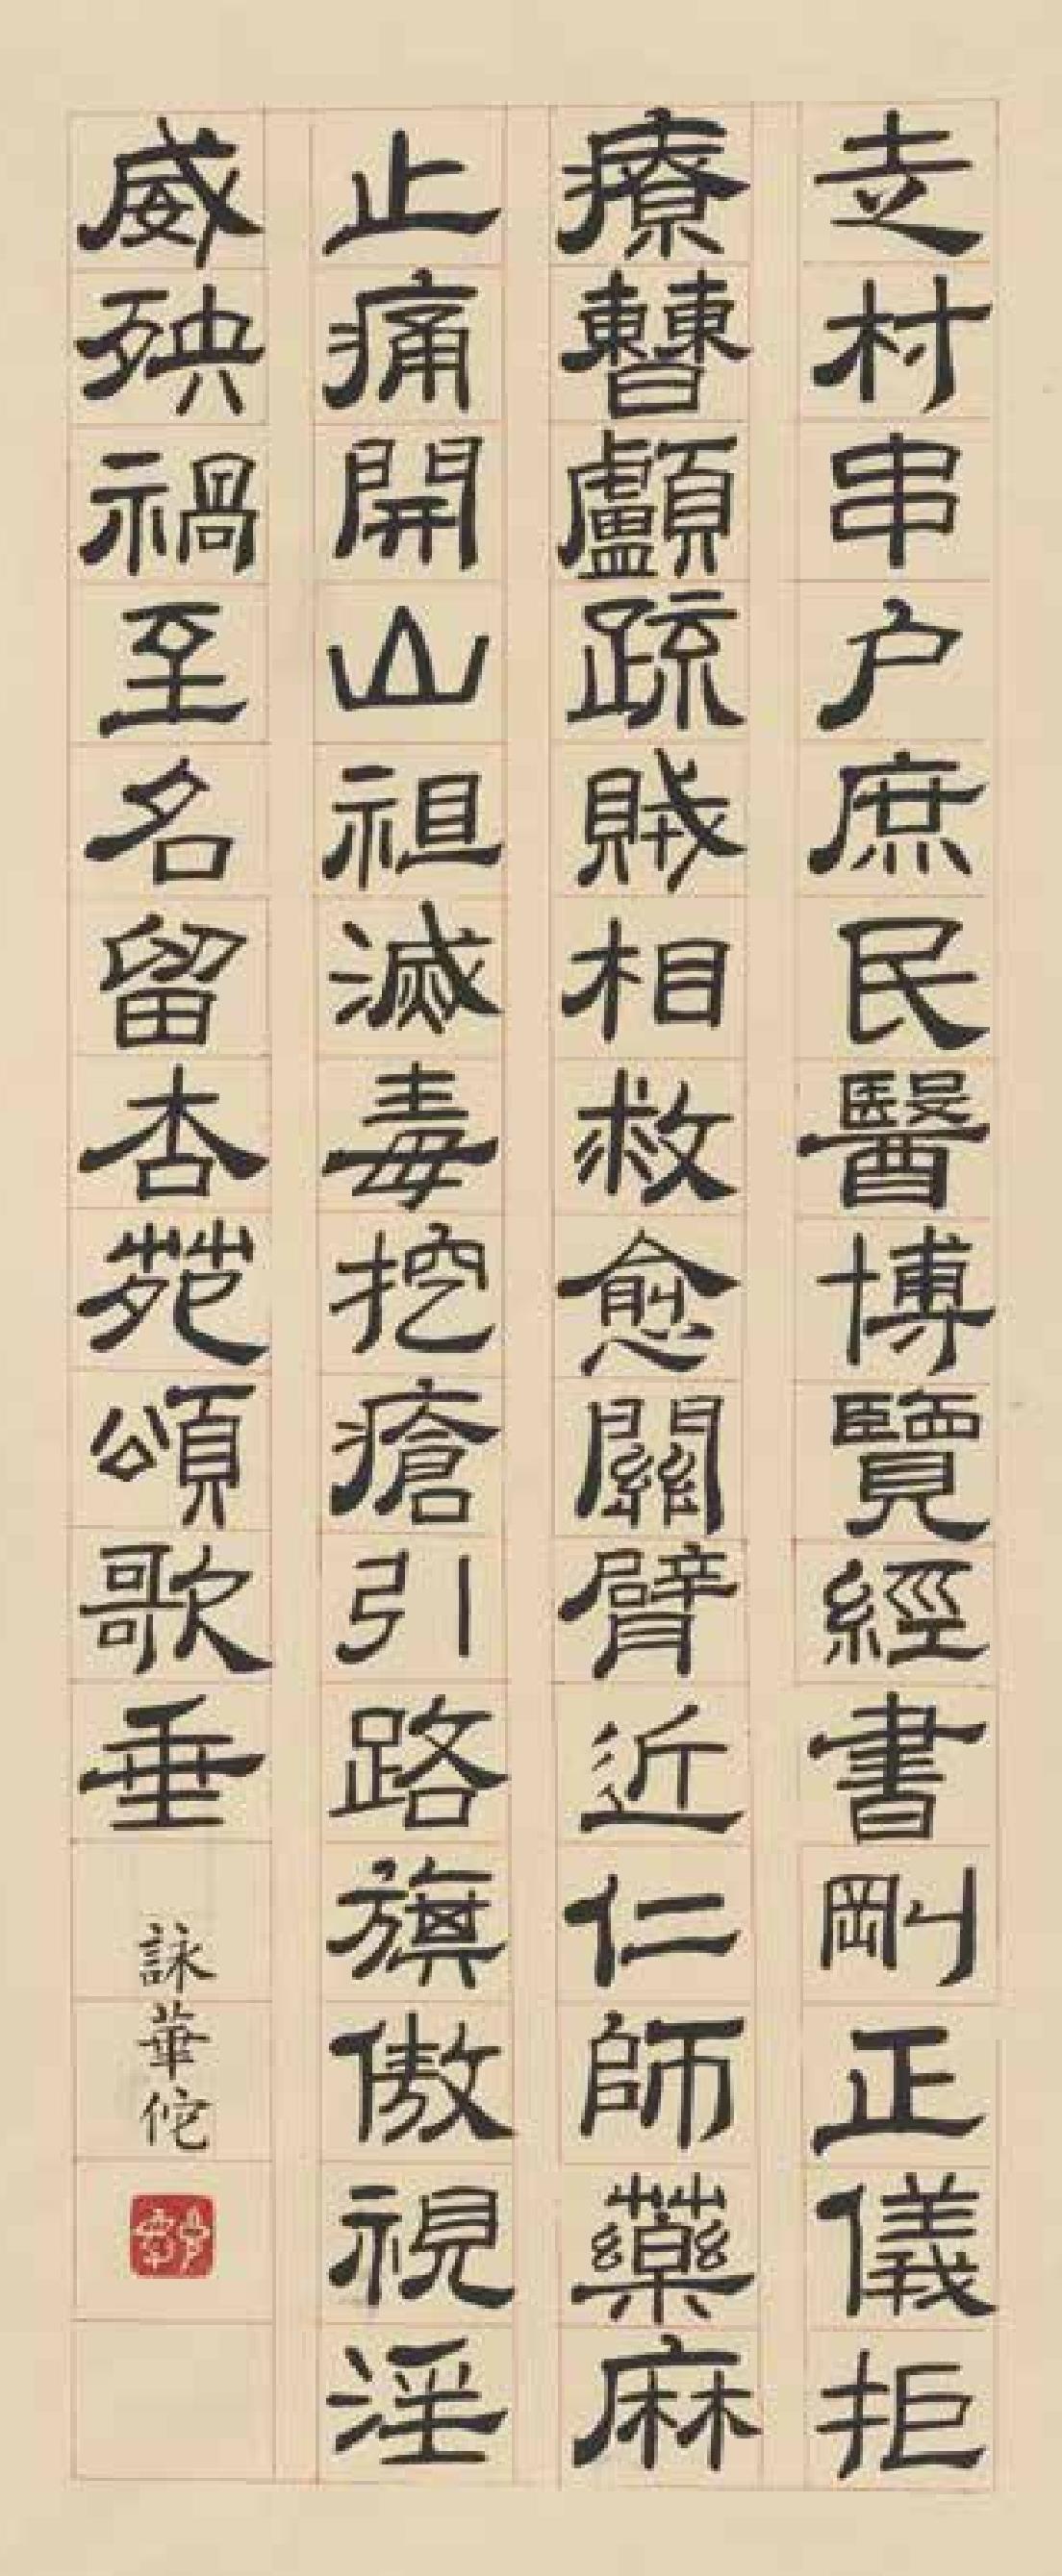 走村串户庶民醫博覽經書剛正儀拒
療曹顱疏賊相救愈關臂近仁師藥麻
止痛開山祖滅毒挖瘡引路旗傲視淫
威殃禍至名留杏苑頌歌垂
詠華佗